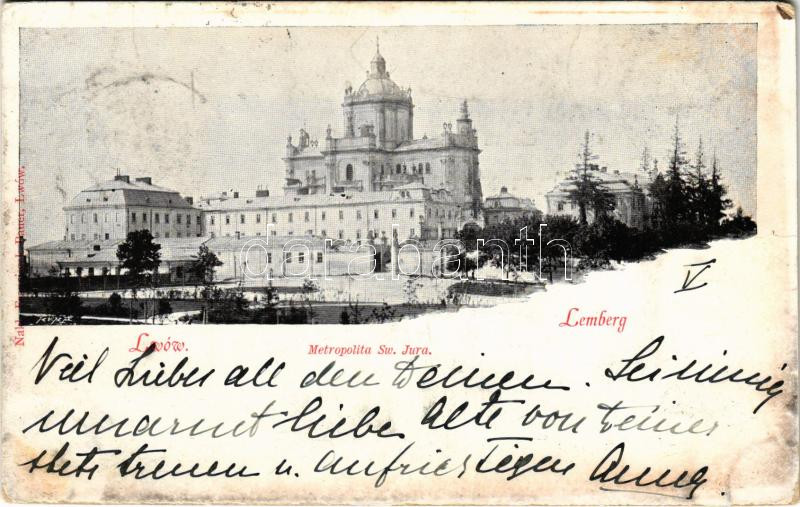 V
Lemberg
Lwów.
Metropolita Sw. Jura.
Viel Liebes all den Deinen. Sei innig
umarmt liebe Alte von Deiner
stets treuen u. aufrichtigen Anna
Bauer, Lwów.
darabanth